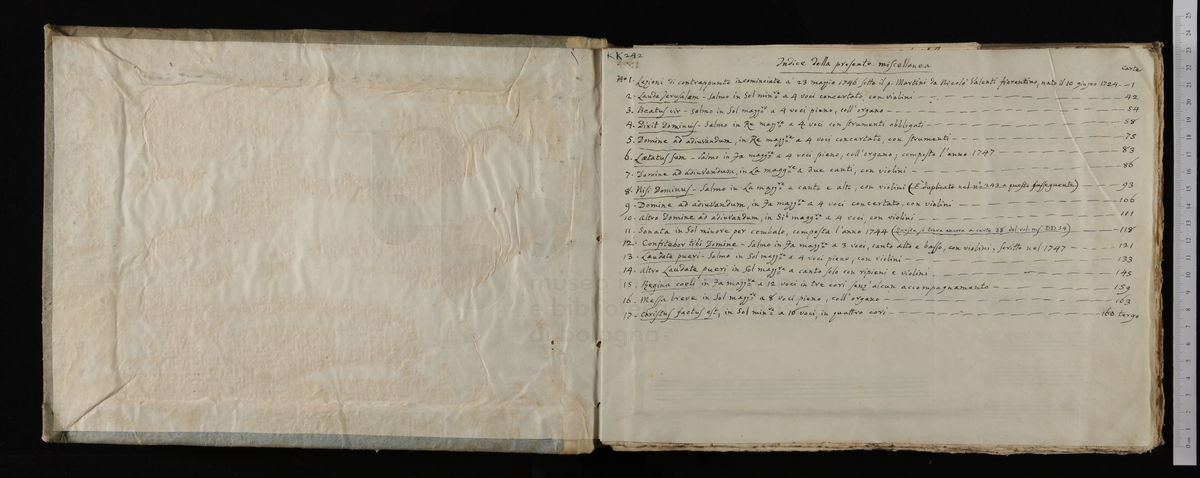 KK 242
Indice della presente miscellanea
carte
No 1. Lezioni di contrappunto incominciate a 23 maggio 1746 sotto il p. Martini da Nicolò Valenti fiorentino, nato il 10 giugno 1724. — 1
2. Lauda Jerusalem - Salmo in Sol min.re a 4 voci concertato, con violini — 42
3. Beatus vir - Salmo in Sol magg.re a 4 voci pieno, coll'organo — 54
4. Dixit Dominus - Salmo in Re magg.re a 4 voci con strumenti obbligati — 58
5. Domine ad adiuvandum, in Re magg.re a 4 voci concertato, con strumenti — 75
6. Laetatus sum - Salmo in Fa magg.re a 4 voci pieno, coll'organo; composto l'anno 1747 — 83
7. Domine ad adiuvandum, in La magg.re a due canti, con violini — 86
8. Nisi Dominus - Salmo in La magg.re a canto e alto, con violini (È duplicato nel n.o 243 a questo susseguente) — 93
9. Domine ad adiuvandum, in Fa magg.re a 4 voci concertato, con violini — 106
10. Altro Domine ad adiuvandum, in Si b magg.re a 4 voci, con violini — 111
11. Sonata in Sol minore per cembalo, composta l'anno 1744 (Questa si trova ancora a carte 38 del vol. ms. DD 54) — 118
12. Confitebor tibi Domine - Salmo in Fa magg.re a 3 voci, canto alto e basso, con violini, scritto nel 1747 — 121
13. Laudate pueri - Salmo in Sol magg.re a 4 voci pieno, con violini — 133
14. Altro Laudate pueri in Sol magg.re a canto solo con ripieni e violini — 145
15. Regina coeli in Fa magg.re a 12 voci in tre cori senz'alcun accompagnamento — 159
16. Messa breve in Sol magg.re a 8 voci pieno, coll'organo — 163
17. Christus factus est, in Sol min.re a 16 voci, in quattro cori — 166 tergo
museo
e biblio
di bologna